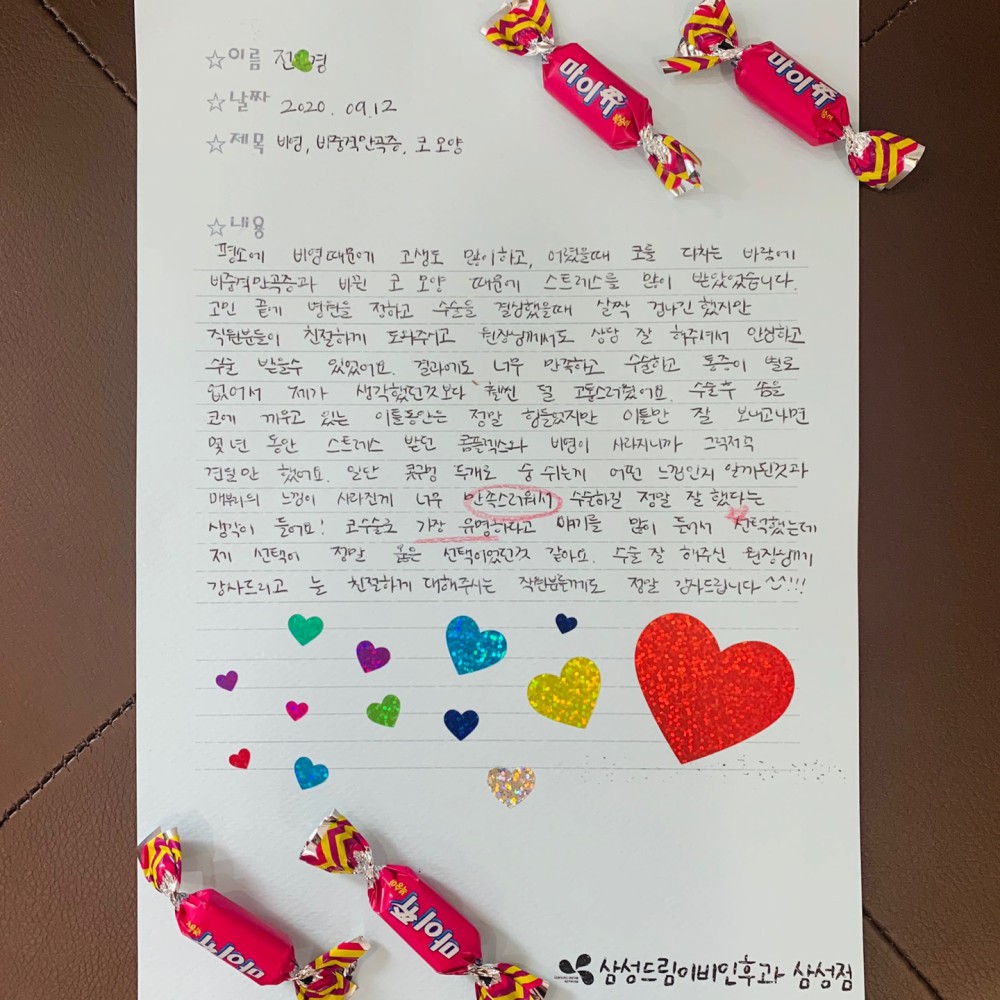 마이쮸
마이쮸
☆이름 전 영
☆날짜 2020. 09. 12
☆제목 비염, 비중격만곡증, 코 모양
☆내용
평소에 비염때문에 고생도 많이하고, 어렸을때 코를 다치는 바람에
비중격만곡증과 비뀐 코 모양 때문에 스트레스를 많이 받았었습니다.
고민 끝에 병원을 정하고 수술을 결심했을때 살짝 겁나긴 했지만
직원분들이 친절하게 도와주시고 원장님께서도 상담 잘 해주셔서 안심하고
수술 받을수 있었어요. 결과에도 너무 만족하고 수술하고 통증이 별로
없어서 제가 생각했던것보다 훨씬 덜 고통스러웠어요. 수술후 솜을
코에 끼우고 있는 이틀동안은 정말 힘들었지만 이틀만 잘 보내고나면
몇 년 동안 스트레스 받던 콤플렉스와 비염이 사라지니까 그럭저럭
견딜만 했어요. 일단 콧구멍 두개로 숨 쉬는게 어떤 느낌인지 알게된것과
매부리의 느낌이 사라진게 너무 만족스러워서 수술하길 정말 잘 했다는
생각이 들어요! 코수술로 가장 유명하다고 얘기를 많이 들어서 선택했는데
제 선택이 정말 옳은 선택이었던것 같아요. 수술 잘 해주신 원장님께
감사드리고 늘 친절하게 대해주시는 직원분들께도 정말 감사드립니다 ^^!!!
마이쮸
마이쮸
삼성드림이비인후과 삼성점